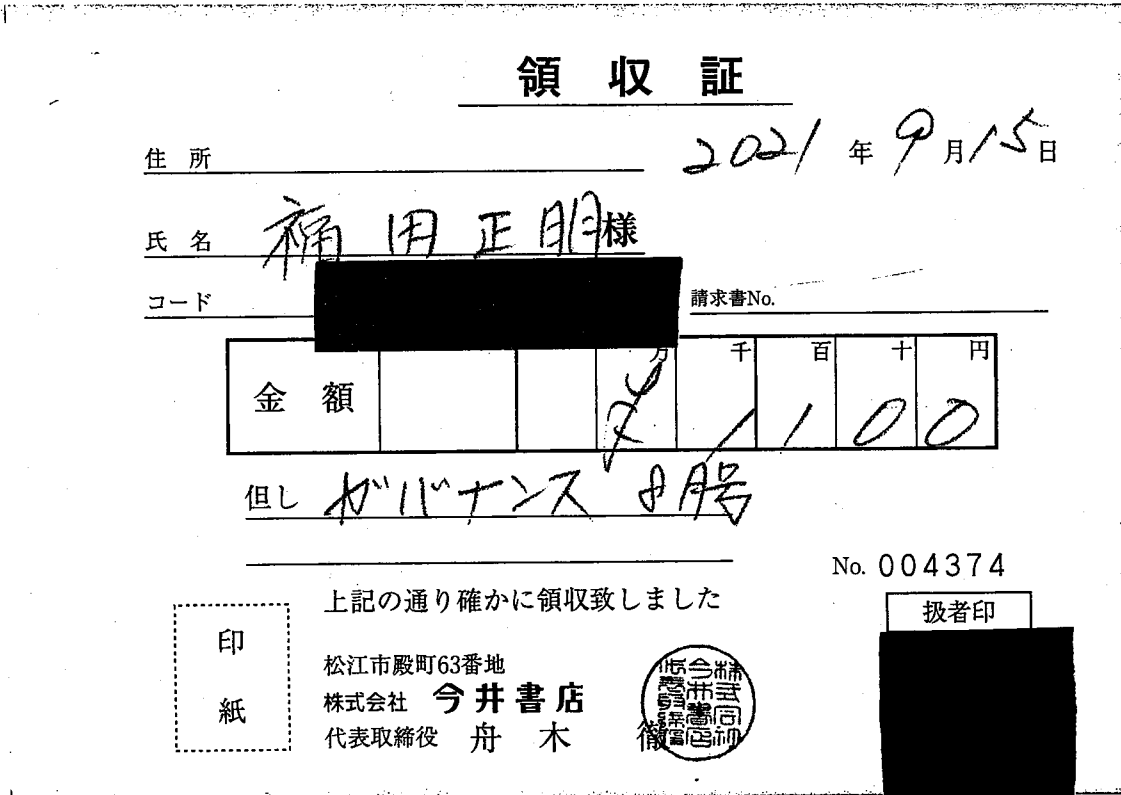 領収証
2021年9月15日
住所
氏名 福田正明様
コード
請求書No.
金額 万千百十円
¥1100
但し ガバナンス 8月号
No. 004374
上記の通り確かに領収致しました
扱者印
印紙
松江市殿町63番地
株式会社 今井書店
代表取締役 舟木 徹